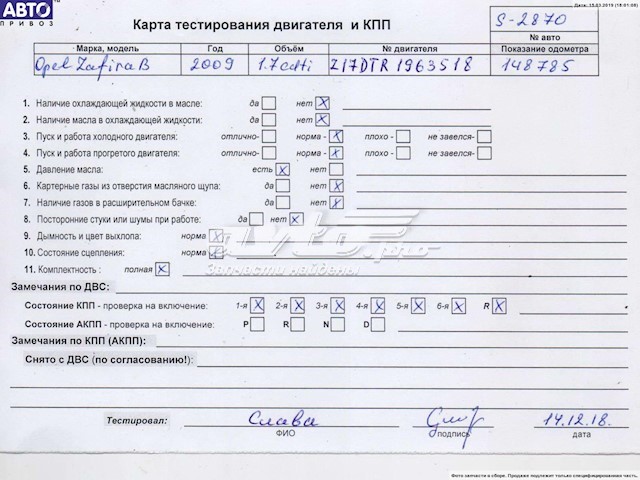 АВТО
ПРИВОЗ
Дата: 15.03.2019 (18:01:08)
Карта тестирования двигателя и КПП
S-2870
№ авто
Марка, модель Год Объём № двигателя Показание одометра
Opel Zafira B 2009 1.7 cdti Z17DTR 1963518 148785
1. Наличие охлаждающей жидкости в масле: да нет X
2. Наличие масла в охлаждающей жидкости: да нет X
3. Пуск и работа холодного двигателя: отлично- норма - X плохо - не завелся-
4. Пуск и работа прогретого двигателя: отлично- норма - X плохо - не завелся-
5. Давление масла: есть X нет
6. Картерные газы из отверстия масляного щупа: да нет X
7. Наличие газов в расширительном бачке: да нет X
8. Посторонние стуки или шумы при работе: да нет X
9. Дымность и цвет выхлопа: норма X
10. Состояние сцепления: норма X
Запчасти найдены
11. Комплектность : полная X
Замечания по ДВС:
Состояние КПП - проверка на включение: 1-я X 2-я X 3-я X 4-я X 5-я X 6-я X R X
Состояние АКПП - проверка на включение: P R N D
Замечания по КПП (АКПП):
Снято с ДВС (по согласованию!):
Тестировал: Слава 14.12.18.
ФИО подпись дата
Фото запчасти в сборе. Продаже подлежит только специфицированная часть.